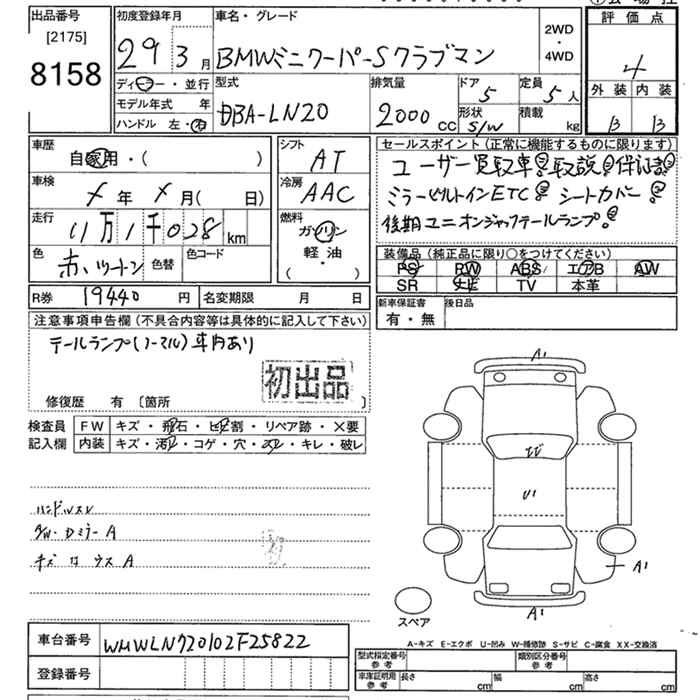 出品番号
[2175]
8158
初度登録年月
29 3月
車名・グレード
BMWミニクーパーSクラブマン
2WD
・
4WD
評価点
4
外装 内装
B B
ディーラー・並行
モデル年式 年
ハンドル 左・右
型式
DBA-LN20
排気量
2000 cc
ドア
5
形状
S/W
定員
5人
積載
kg
車歴
自家用・( )
車検
年 月( 日)
走行
11万1千028 km
色
赤、ツートン
色替
色コード
シフト
AT
冷房
AAC
燃料
ガソリン
軽油
( )
セールスポイント(正常に機能するものに限ります)
ユーザー買取車! 取説! 保証書!
ミラービルトインETC! シートカバー!
後期ユニオンジャックテールランプ!
装備品(純正品に限り○をつけてください)
PS PW ABS エアB AW
SR ナビ TV 本革
R券 19440 円
名変期限 月 日
新車保証書
有・無
後日品
注意事項申告欄(不具合内容等は具体的に記入して下さい)
テールランプ(ノーマル)車内あり
初出品
修復歴 有 〔箇所 〕
検査員
記入欄
FW キズ・飛石・ヒビ割・リペア跡・×要
内装 キズ・汚レ・コゲ・穴・スレ・キレ・破レ
ハンドルスレ
キズ ロ ウス A
A1
U1
A1
A1
スペア
A-キズ E-エクボ U-凹み W-補修跡 S-サビ C-腐食 XX-交換済
車台番号 WMWLN720102F25822
登録番号
型式指定番号
参考
類別区分番号
参考
車庫証明用
参考
長さ cm 幅 cm 高さ cm